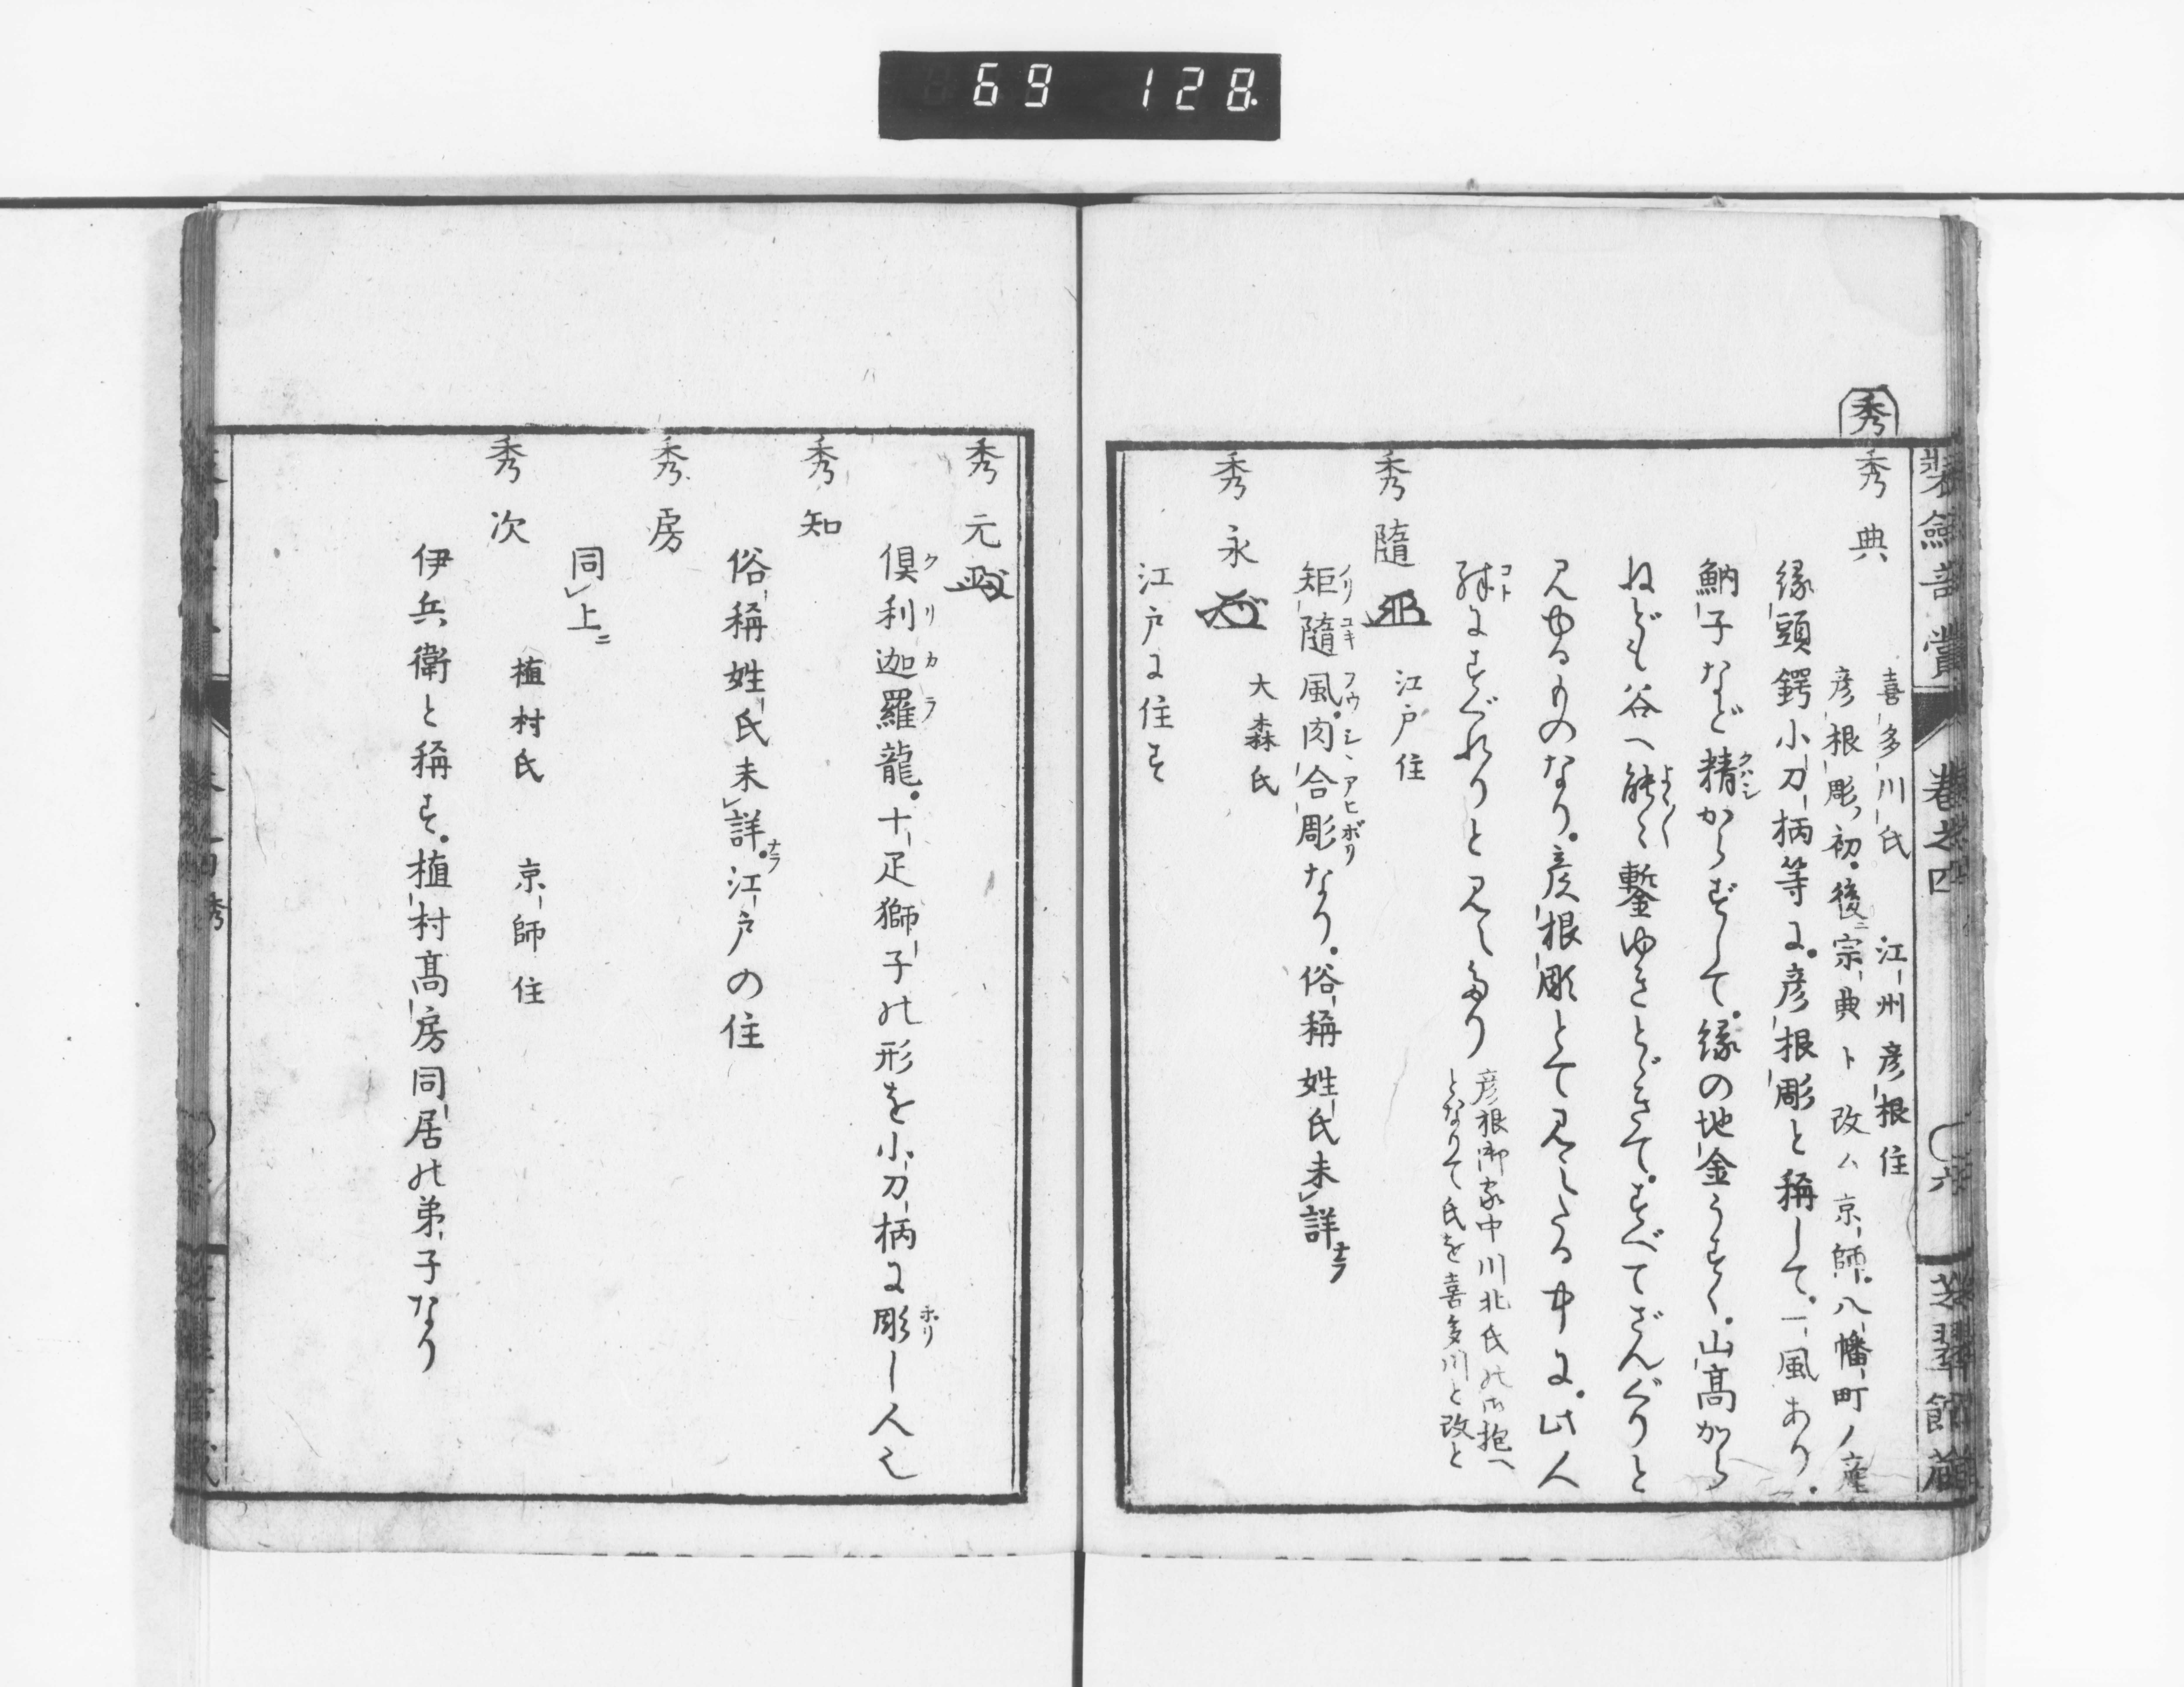 69 128
秀
装劍奇賞 卷之四 〇六
秀典
喜多川氏 江州彦根住
彦根彫初後ニ宗典ト改ム京師八幡町ノ産
縁頭鍔小刀柄等に。彦根彫と稱して。一風あり。
魶子など精からずして。縁の地金うすく。山高から
ねども谷へ能〻鏨ゆきとゞきて。すべてざんぐりと
見ゆるものなり。彦根彫とて見えたる中に。此人
殊にすぐれりと見えたり
彦根御家中川北氏の御抱へ
となりて氏を喜多川と改と
秀隨 江戸住
矩隨風。肉合彫なり。俗稱姓氏未詳
秀永 大森氏
江戸に住す
秀元
倶利迦羅龍。十疋獅子の形を小刀柄に彫し人也
秀知
俗稱姓氏未詳。江戸の住
秀房
同上ニ
秀次 植村氏 京師住
伊兵衛と稱す。植村髙房同居の弟子なり